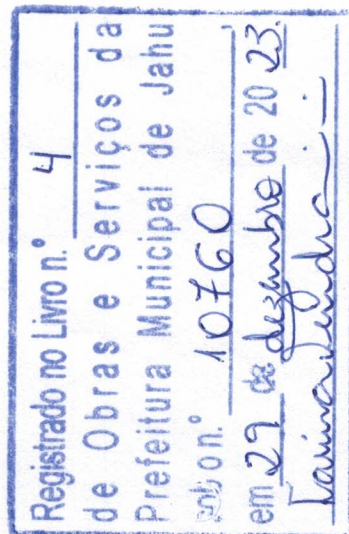 Registrado no Livro n.º 4
de Obras e Serviços da
Prefeitura Municipal de Jahu
sob o n.º 10760
em 29 de dezembro de 2023.